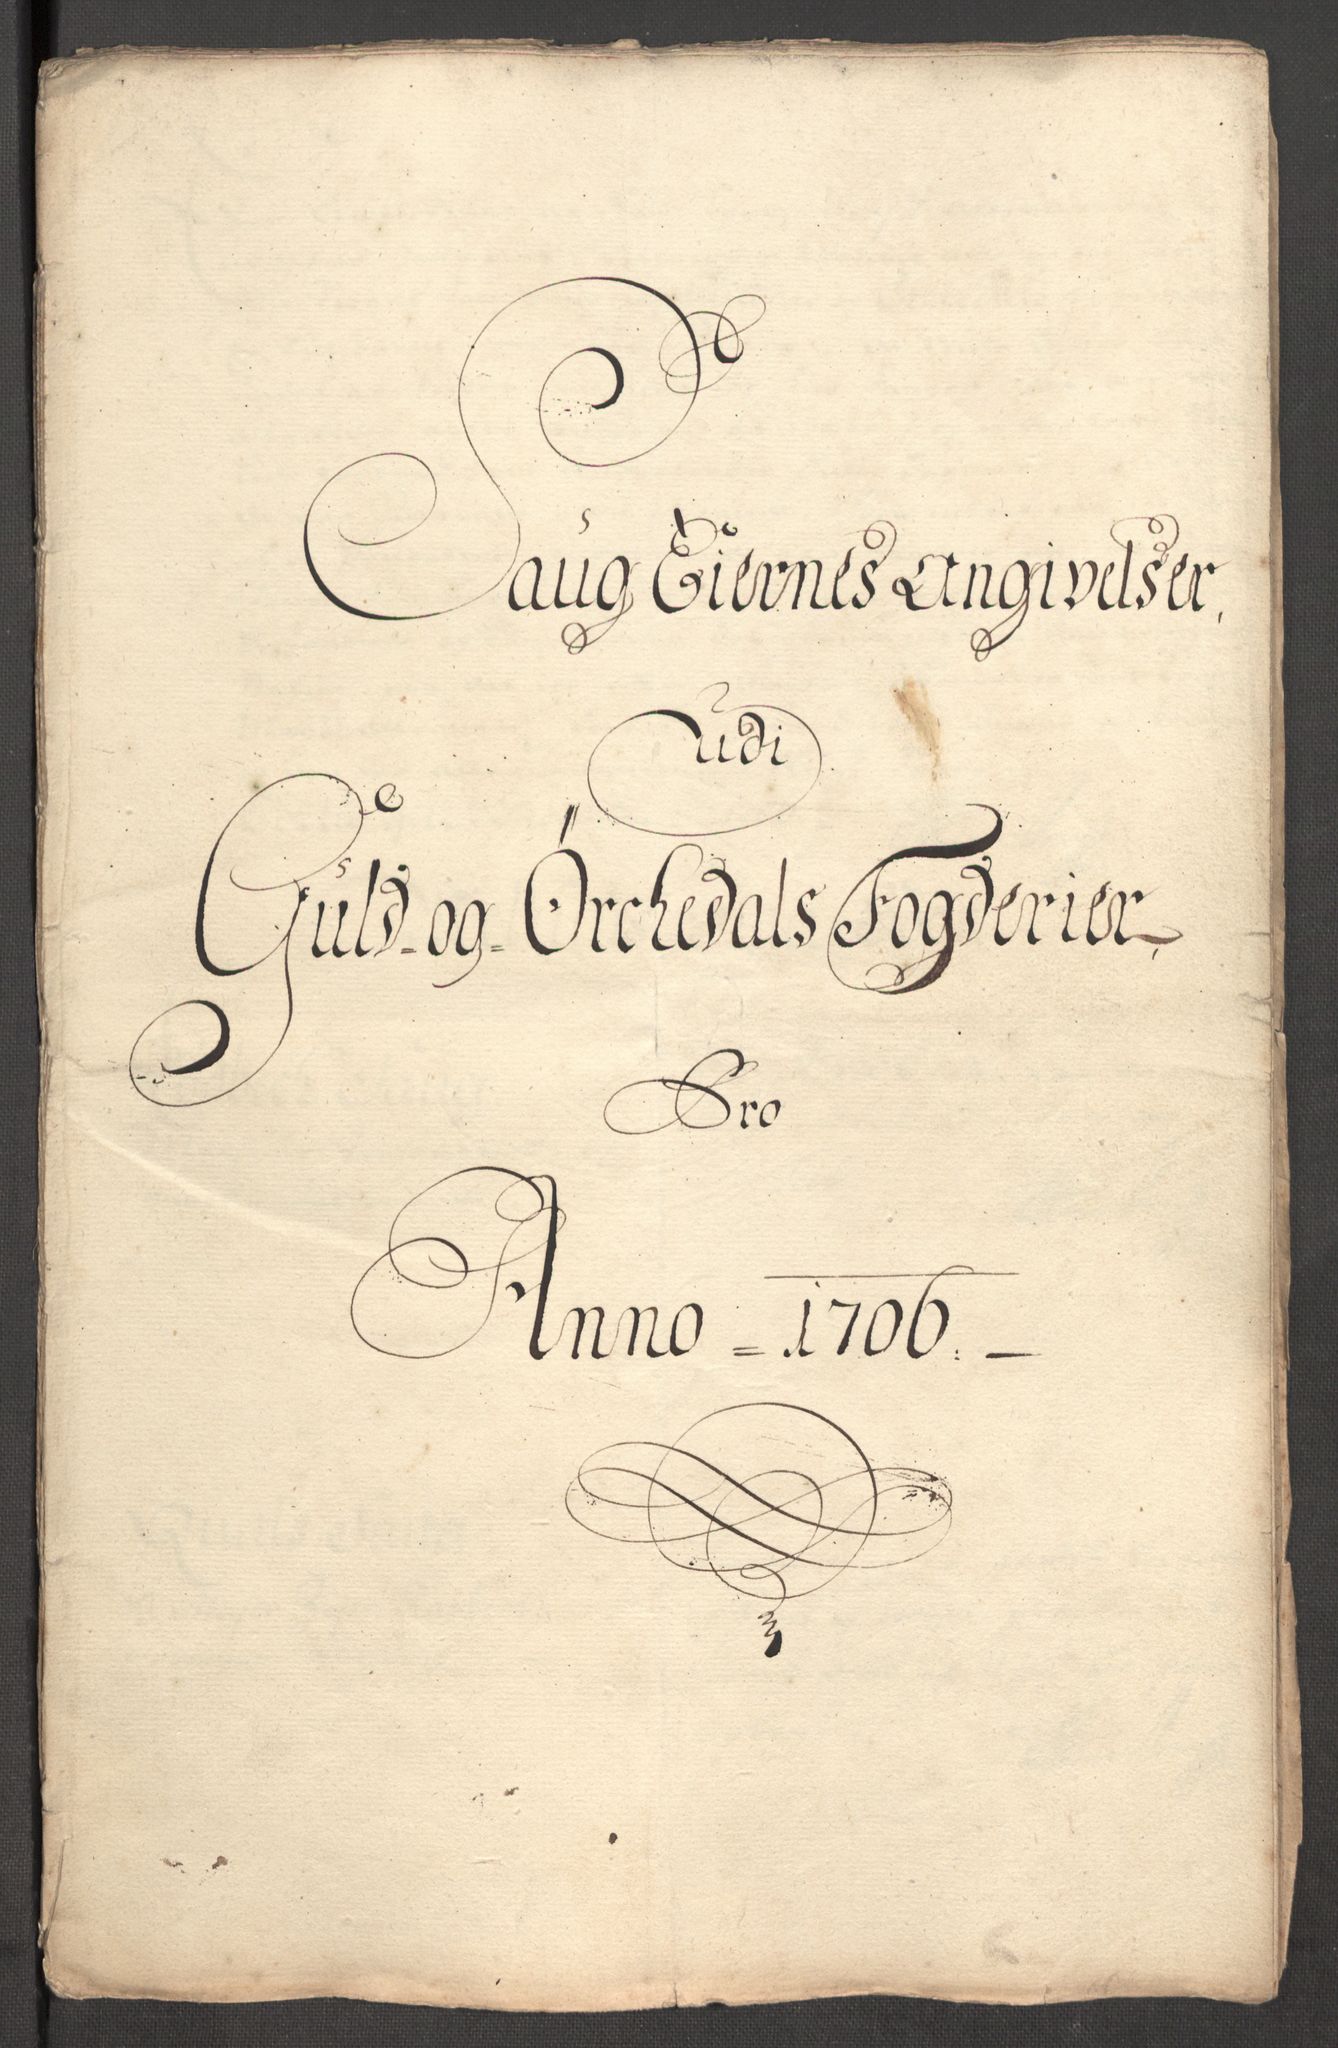 Saug Eiernes Angivelser,
udi
Guld- og- Örchedals Fogderier,
Pro
Anno = 1706. —